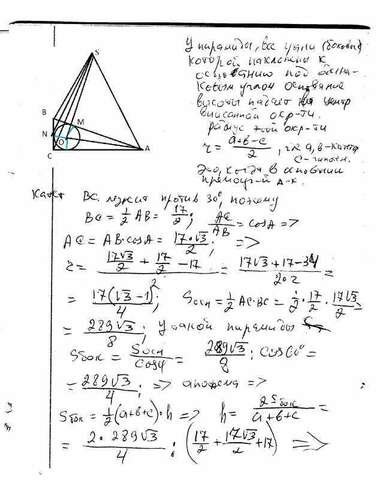 S
B
N
M
O
C
A
У пирамиды, все углы (боковые)
которой наклонены к
основанию под одина-
ковым углом основание
высоты падает на центр
вписанной окр-ти.
радиус этой окр-ти
r = (a+b-c)/2, где a, b - катеты
c - гипотен.
Это, когда в основании
прямоуг-й Δ-к.
Катет BC лежит против 30°, поэтому
BC = 1/2 AB = 17/2; AC/AB = cosA =>
AC = AB·cosA = 17·√3/2; =>
r = (17√3/2 + 17/2 - 17)/2 = (17√3 + 17 - 34)/(2·2) =
= 17(√3 - 1)/4; Sосн = 1/2 AC·BC = 1/2 · 17/2 · 17√3/2 =
= 289√3/8; у такой пирамиды
Sбок = Sосн/cosφ = 289√3/8 : cos60° =
= 289√3/4; => апофема =>
Sбок = 1/2(a+b+c)·h => h = 2Sбок/(a+b+c) =
= 2·289√3/4 : (17/2 + 17√3/2 + 17) =>